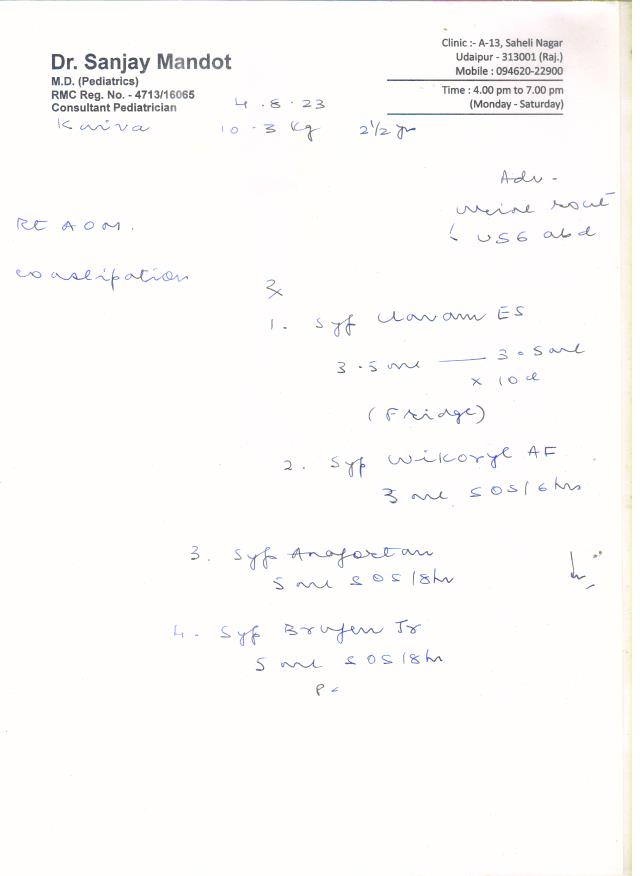 Dr. Sanjay Mandot
M.D. (Pediatrics)
RMC Reg. No. - 4713/16065
Consultant Pediatrician
Clinic :- A-13, Saheli Nagar
Udaipur - 313001 (Raj.)
Mobile : 094620-22900
Time : 4.00 pm to 7.00 pm
(Monday - Saturday)
4.8.23
10.3 Kg 2 1/2 yr
Adv -
Urine rout
USG abd
Rt AOM.
constipation
Rx
1. Syp Clavam ES
3.5 ml — 3.5 ml
x 10 d
(Fridge)
2. Syp Wikoryl AF
3 ml SOS/6 hrs
3. Syp Anafortan
5 ml SOS/8hr
4. Syp Brufen Jr
5 ml SOS/8hr